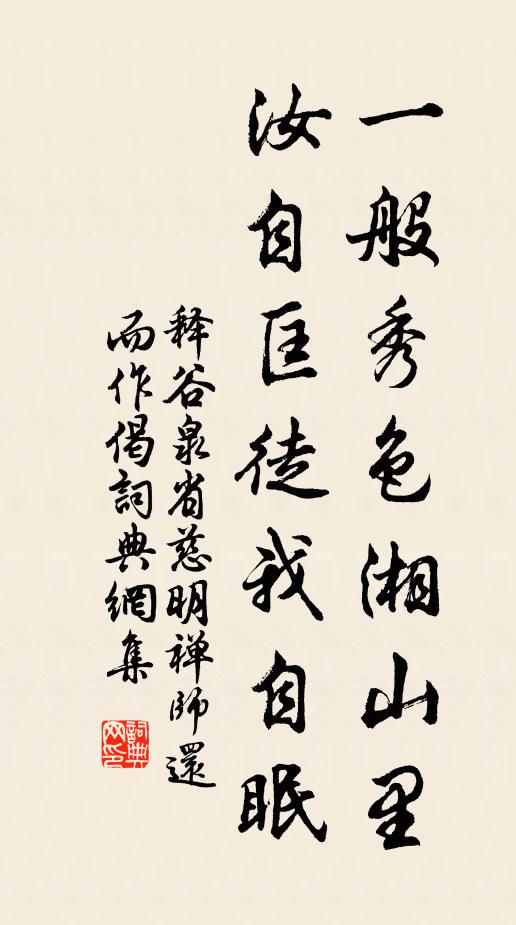 一般秀色湘山里
汝自匡徒我自眠
释谷泉省慈明禅师還
而作偈詞典網集
詞典
网印